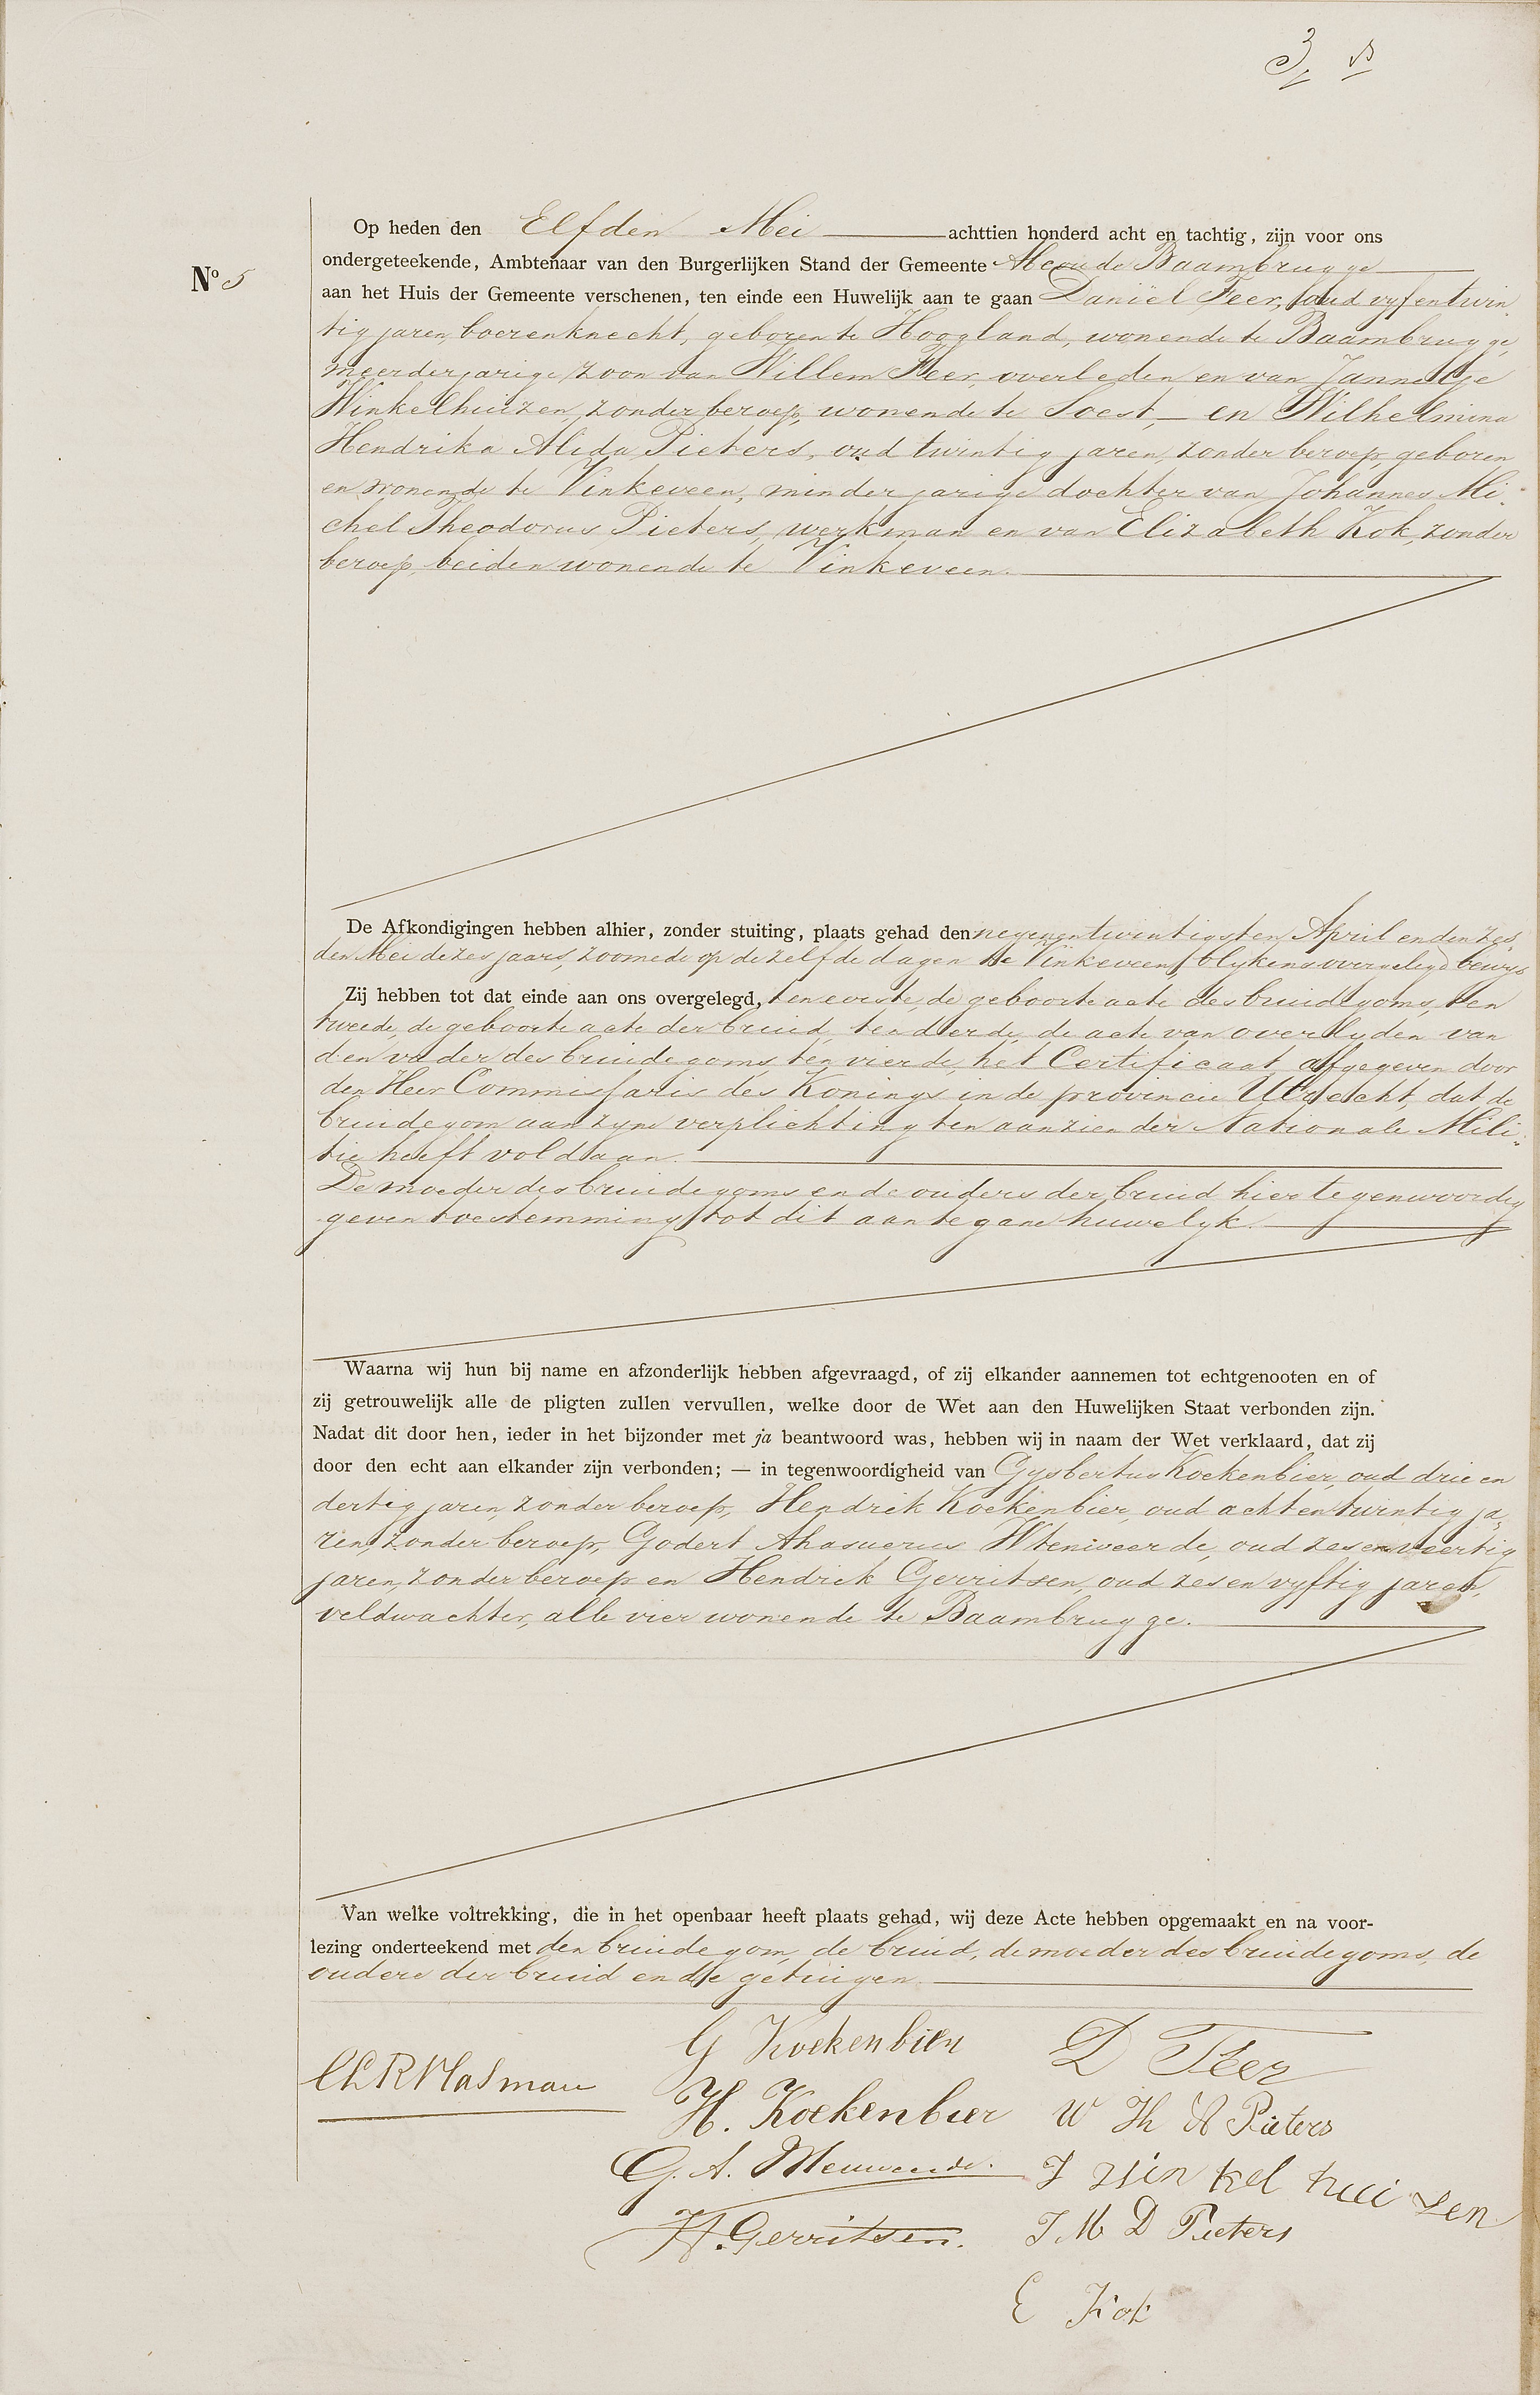 3
N° 5
Op heden den Elfden Mei achttien honderd acht en tachtig, zijn voor ons
ondergeteekende, Ambtenaar van den Burgerlijken Stand der Gemeente Abcoude Baambrugge
aan het Huis der Gemeente verschenen, ten einde een Huwelijk aan te gaan Daniël Feer, oud vyfentwin
tig jaren, boerenknecht, geboren te Hoogland, wonende te Baambrugge,
meerderjarige zoon van Willem Feer, overleden en van Jannetje
Winkelhuizen, zonder beroep, wonende te Soest, – en Wilhelmina
Hendrika Alida Pieters, oud twintig jaren, zonder beroep, geboren
en wonende te Vinkeveen, minderjarige dochter van Johannes Mi-
chel Theodorus Pieters, werkman en van Elizabeth Kok, zonder
beroep, beiden wonende te Vinkeveen.
De Afkondigingen hebben alhier, zonder stuiting, plaats gehad den negenentwintigsten April en den zes
den Mei dezes jaars, zoomede op dezelfde dagen te Vinkeveen, blykens overgelegd bewys
Zij hebben tot dat einde aan ons overgelegd, ten eerste, de geboorteacte des bruidegoms, ten
tweede, de geboorteacte der bruid, ten derde, de acte van overlyden van
den vader des bruidegoms, ten vierde, het Certificaat, afgegeven door
den Heer Commissaris des Konings in de provincie Utrecht, dat de
bruidegom aan zyne verplichting ten aanzien der Nationale Mili-
tie heeft voldaan.
De moeder des bruidegoms en de ouders der bruid hier tegenwoordig
geven toestemming tot dit aan te gane huwelyk.
Waarna wij hun bij name en afzonderlijk hebben afgevraagd, of zij elkander aannemen tot echtgenooten en of
zij getrouwelijk alle de pligten zullen vervullen, welke door de Wet aan den Huwelijken Staat verbonden zijn.
Nadat dit door hen, ieder in het bijzonder met ja beantwoord was, hebben wij in naam der Wet verklaard, dat zij
door den echt aan elkander zijn verbonden; — in tegenwoordigheid van Gysbertus Koekenbier, oud drie en
dertig jaren, zonder beroep, Hendrik Koekenbier, oud achtentwintig ja-
ren, zonder beroep, Godert Ahasuerus Wtenweerde, oud zesenveertig
jaren, zonder beroep en Hendrik Gerritsen, oud zesenvyftig jaren,
veldwachter, alle vier wonende te Baambrugge.
Van welke voltrekking, die in het openbaar heeft plaats gehad, wij deze Acte hebben opgemaakt en na voor-
lezing onderteekend met den bruidegom, de bruid, de moeder des bruidegoms, de
ouders der bruid en de getuigen.
G Koekenbier D Feer
H. Koekenbier W H A Pieters
G. A. J winkel huizen
H. Gerritsen. J M D Pieters
E Kok